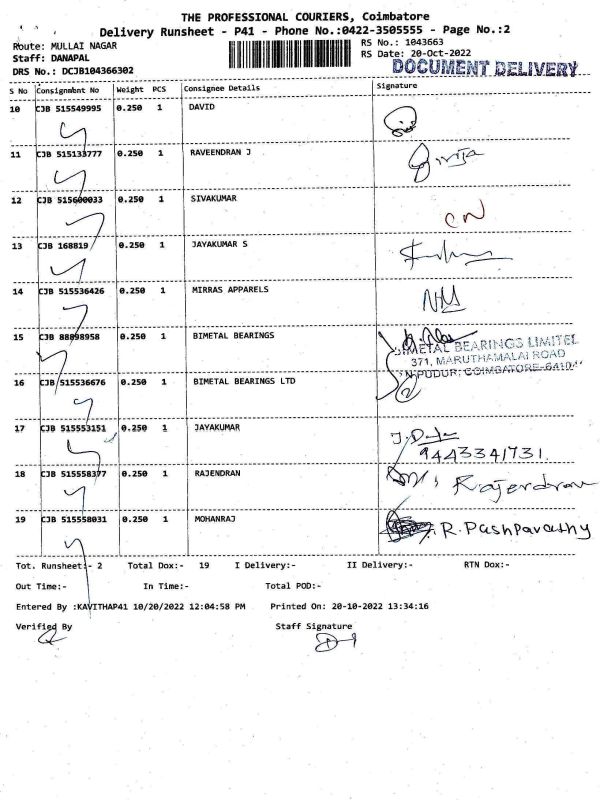 THE PROFESSIONAL COURIERS, Coimbatore
Delivery Runsheet - P41 - Phone No.:0422-3505555 - Page No.:2
Route: MULLAI NAGAR
RS No.: 1043663
Staff: DANAPAL
RS Date: 20-Oct-2022
DRS No.: DCJB104366302
DOCUMENT DELIVERY
S No Consignment No Weight PCS Consignee Details Signature
10 CJB 515549995 0.250 1 DAVID
11 CJB 515133777 0.250 1 RAVEENDRAN J Girija
12 CJB 515600033 0.250 1 SIVAKUMAR CN
13 CJB 168819 0.250 1 JAYAKUMAR S
14 CJB 515536426 0.250 1 MIRRAS APPARELS
15 CJB 88898958 0.250 1 BIMETAL BEARINGS
BIMETAL BEARINGS LIMITED
371, MARUTHAMALAI ROAD
16 CJB 515536676 0.250 1 BIMETAL BEARINGS LTD
17 CJB 515553151 0.250 1 JAYAKUMAR
9443341731.
18 CJB 515558377 0.250 1 RAJENDRAN Rajendran
19 CJB 515558031 0.250 1 MOHANRAJ R. Pashpavathy
Tot. Runsheet:- 2 Total Dox:- 19 I Delivery:- II Delivery:- RTN Dox:-
Out Time:- In Time:- Total POD:-
Entered By :KAVITHAP41 10/20/2022 12:04:58 PM Printed On: 20-10-2022 13:34:16
Verified By Staff Signature